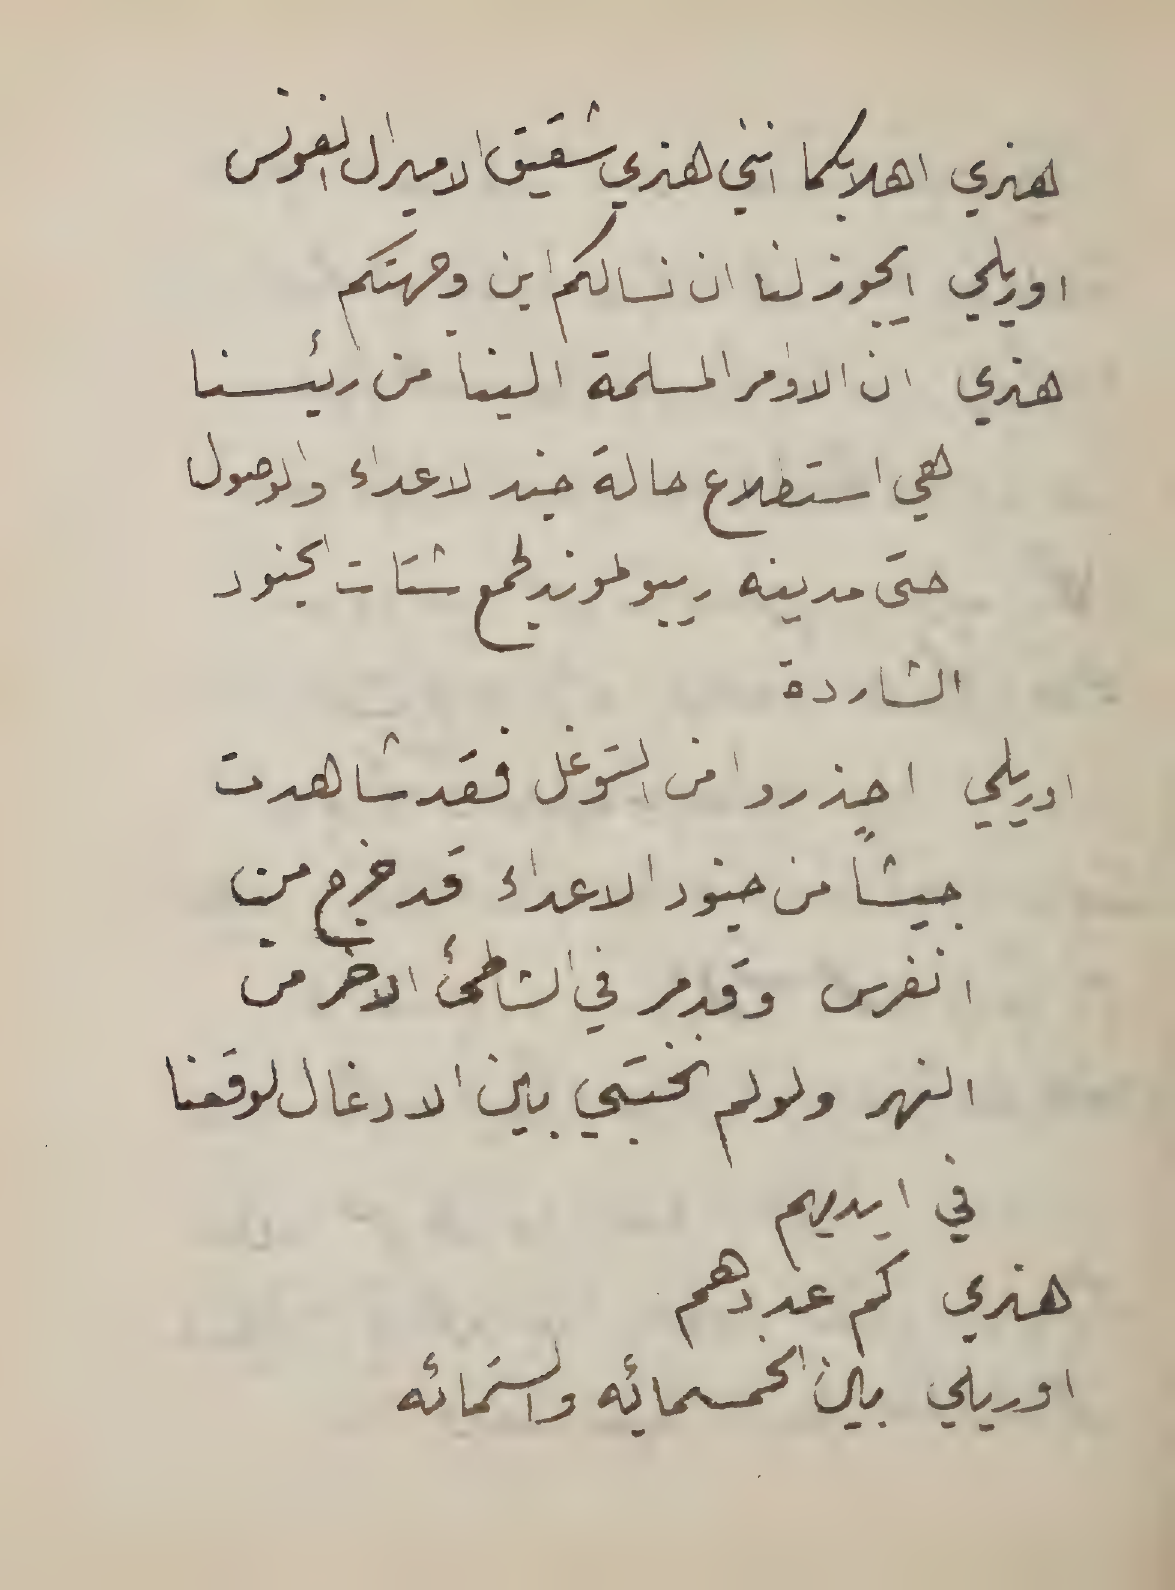 هنري اهلا بكما انني هنري شقيق الاميرال الفونس
اوريلي ايجوز لنا ان نسالكم اين وجهتكم
هنري ان الاوامر المسلمة الينا من رئيسنا
هي استطلاع حالة جند لاعداء والوصول
حتى مدينه ريبوطوند لجمع شتات الجنود
الشاردة
اوريلي احذروا من التوغل فقد شاهدت
جيشاً من جنود الاعداء قد خرج من
انفرس وقد مر في الشاطئ الاخر من
النهر ولو لم نختبي بين الادغال لوقعنا
في ايديهم
هنري كم عددهم
اوريلي بين الخمسمائه والستمائه